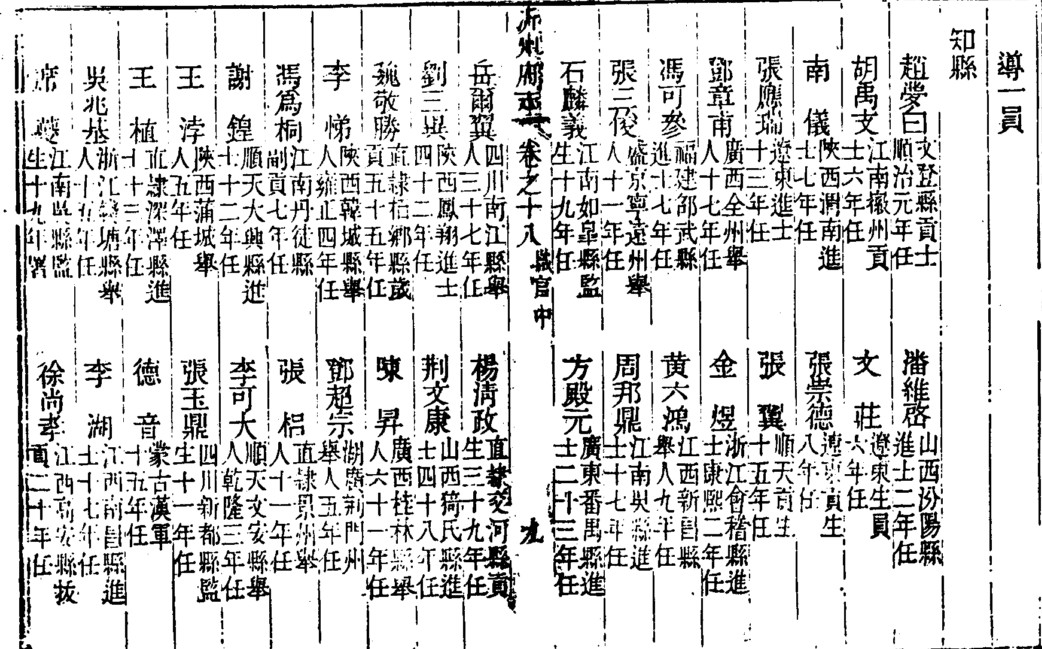 導一員
知縣
趙夢曰文登縣貢士順治元年任
潘維啓山西汾陽縣進士二年任
胡禹文江南徽州貢士六年任
文莊遼東生員六年任
南儀陝西渭南進士七年任
張崇德遼東貢生八年任
張應瑞遼東進士十三年任
張翼順天貢生十五年任
鄧章甫廣西全州舉人十七年任
金煜浙江會稽縣進士康熙二年任
馮可參福建邵武縣進士七年任
黃六鴻江西新昌縣舉人九年任
張三俊盛京寧遠州舉人十一年任
周邦鼎江南吳縣進士十七年任
石麟義江南如皐縣監生十九年任
方殿元廣東番禺縣進士二十三年任
沂州府志 卷之十八 職官中 九
岳爾翼四川南江縣舉人三十七年任
楊淸政直隸交河縣貢生三十九年任
劉三異陝西鳳翔進士四十二年任
荆文康山西猗氏縣進士四十八年任
魏敬勝直隸柏鄉縣歲貢五十五年任
陳昇廣西桂林縣舉人六十一年任
李悌陝西韓城縣舉人雍正四年任
鄧超宗湖廣荆門州舉人五年任
馮爲桐江南丹徒縣副貢七年任
張梠直隸景州舉人十一年任
謝鍠順天大興縣進士十二年任
李可大順天文安縣舉人乾隆三年任
王浡陝西蒲城舉人五年任
張玉鼎四川新都縣監生十一年任
王植直隸深澤縣進士十三年任
德音蒙古漢軍十五年任
吳兆基浙江錢塘縣舉人十五年任
李湖江西南昌縣進士十七年任
席 江南 縣監生十九年署
徐尚孝江西高安縣拔貢二十年任